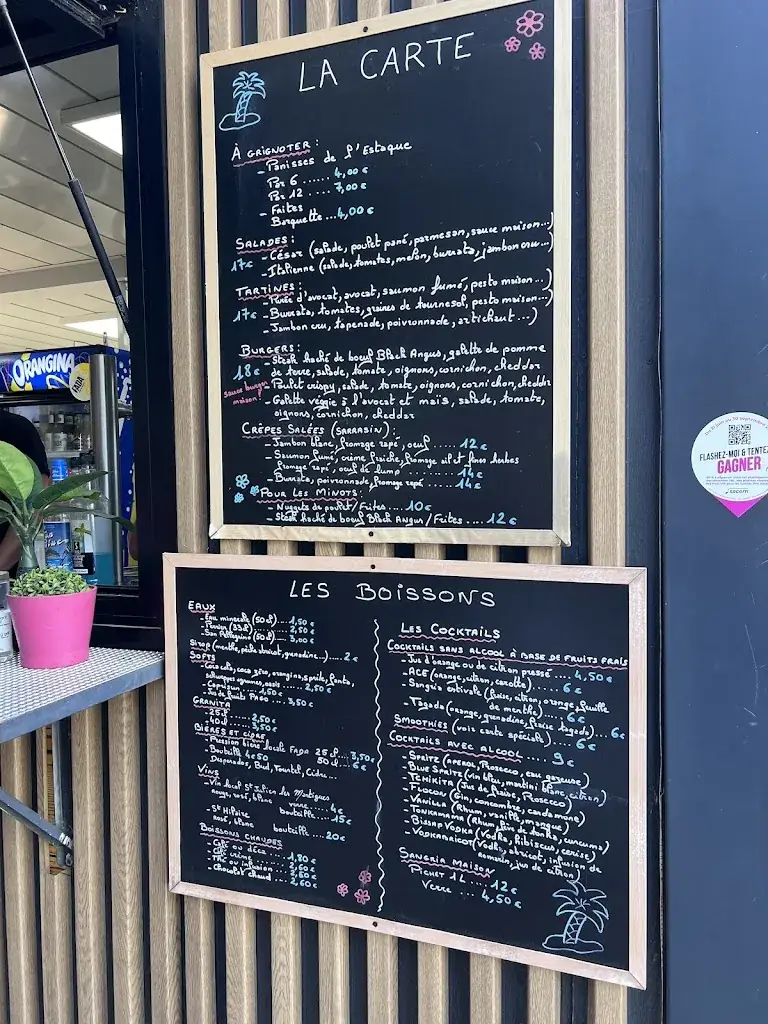 LA CARTE
À GRIGNOTER :
- Panisses de l'Estaque
Par 6 ...... 4,00 €
Par 12 .... 7,00 €
- Frites
Barquette ... 4,00 €
SALADES :
17€ - César (salade, poulet pané, parmesan, sauce maison...)
- Italienne (salade, tomates, melon, burrata, jambon cru...)
TARTINES :
- Purée d'avocat, avocat, saumon fumé, pesto maison...)
17€ - Burrata, tomates, graines de tournesol, pesto maison...)
- Jambon cru, tapenade, poivronnade, artichaut...)
BURGERS :
18€ - Steak haché de boeuf Black Angus, galette de pomme
de terre, salade, tomate, oignons, cornichon, cheddar
sauce burger maison! - Poulet crispy, salade, tomate, oignons, cornichon, cheddar
- Galette veggie à l'avocat et maïs, salade, tomate,
oignons, cornichon, cheddar
CRÊPES SALÉES (SARRASIN) :
- Jambon blanc, fromage rapé, oeuf ..... 12 €
- Saumon fumé, crème fraiche, fromage ail et fines herbes
fromage rapé, oeuf de lump 14 €
- Burrata, poivronnade, fromage rapé ..... 14 €
POUR LES MINOTS :
- Nuggets de poulet / Frites .... 10 €
- Steak haché de boeuf Black Angus / Frites ... 12 €
LES BOISSONS
EAUX
- Eau minérale (50cl) .... 1,50 €
- Perrier (33cl) ....... 2,50 €
- San Pellegrino (50cl) ... 3,00 €
SIROP (menthe, pêche abricot, grenadine...) ..... 2 €
SOFTS
- Coca cola, coca zéro, orangina, sprite, fanta,
schweppes agrumes, oasis ...... 2,50 €
- Caprisun ..... 1,50 €
- Jus de fruits PAGO ... 3,50 €
GRANITA
- 25cl ...... 2,50 €
- 40cl ...... 3,50 €
BIÈRES ET CIDRE
- Pression bière locale FADA 25cl ... 3,50 €
50cl ... 6 €
- Bouteille 4€50
Desperados, Bud, Tourtel, Cidre...
VINS
- Vin local St Julien les Martigues
rouge, rosé, blanc verre 4 €
bouteille ... 15 €
- St Hilaire
rosé, blanc bouteille .... 20 €
BOISSONS CHAUDES
- Café ou déca ..... 1,80 €
- Café crème ..... 2,60 €
- Thé ou infusion ..... 2,60 €
- Chocolat chaud ..... 2,60 €
LES COCKTAILS
COCKTAILS SANS ALCOOL À BASE DE FRUITS FRAIS
- Jus d'orange ou de citron pressé ..... 4,50 €
- ACE (orange, citron, carotte) ..... 6 €
- Sangria estivale (fraise, citron, orange, feuille
de menthe) ..... 6 €
- Tagada (orange, grenadine, fraise tagada) ... 6 €
SMOOTHIES (voir carte spéciale) .... 6 €
COCKTAILS AVEC ALCOOL ..... 9 €
- SPRITZ (APEROL, PROSECCO, eau gazeuse)
- BLUE SPRITZ (Vin bleu, martini blanc, citron)
- TCHIKITA (Jus de fraise, PROSECCO)
- FLOCON (Gin, concombre, cardamome)
- VANILLA (Rhum, vanille, mangue)
- TONKAMAMA (Rhum, fève de tonka, curcuma)
- BISSAP VODKA (Vodka, hibiscus, cerise)
- VODKABRICOT (Vodka, abricot, infusion de
romarin, jus de citron)
SANGRIA MAISON
PICHET 1L ... 12 €
VERRE ..... 4,50 €
ORANGINA
FADA
FLASHEZ-MOI & TENTEZ
GAGNER
sacem